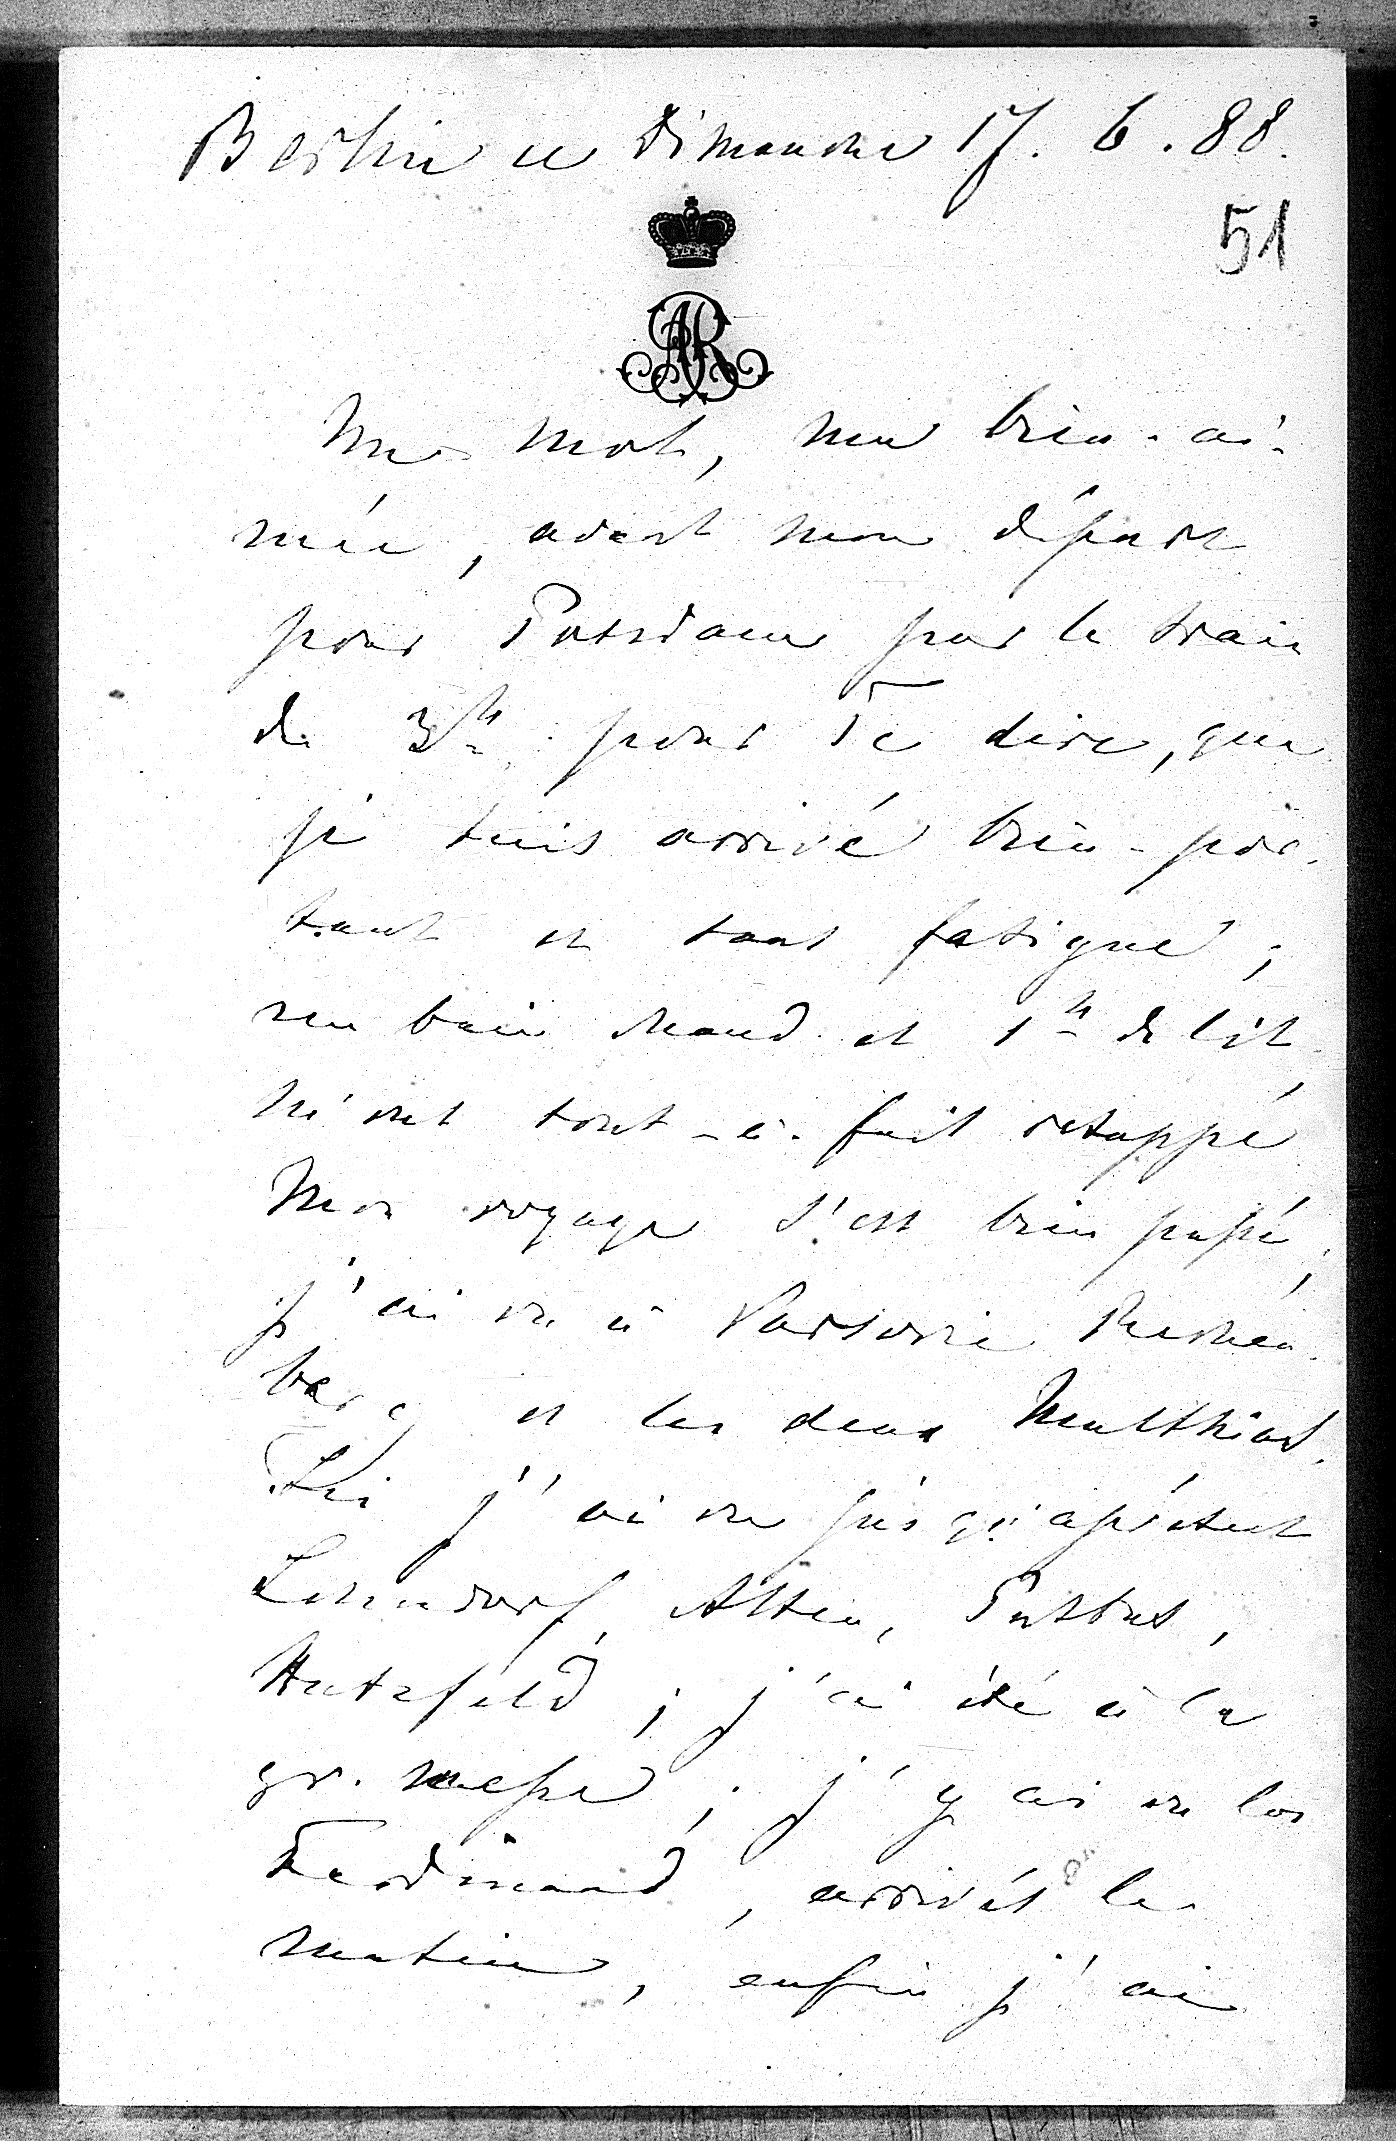 Berlin ce Dimanche 17. 6. 88.
51
AR
Un mot, ma bien-ai-
mée, avant mon départ
pour Potsdam par le train
de 3h pour Te dire, que
je suis arrivé bien-por-
tant et sans fatigue;
un bain chaud et 1h de lit
m'ont tout-à-fait retappé
Mon voyage s'est bien passé,
j'ai vu à Varsovie
berg et les deux
Ici j'ai vu jusqu'à présent
Lehndorf, Alten, Putbus,
Hatzfeld; j'ai été à la
gr. messe; j'y ai vu les
Ferdinand, arrivés le
matin, enfin j'ai